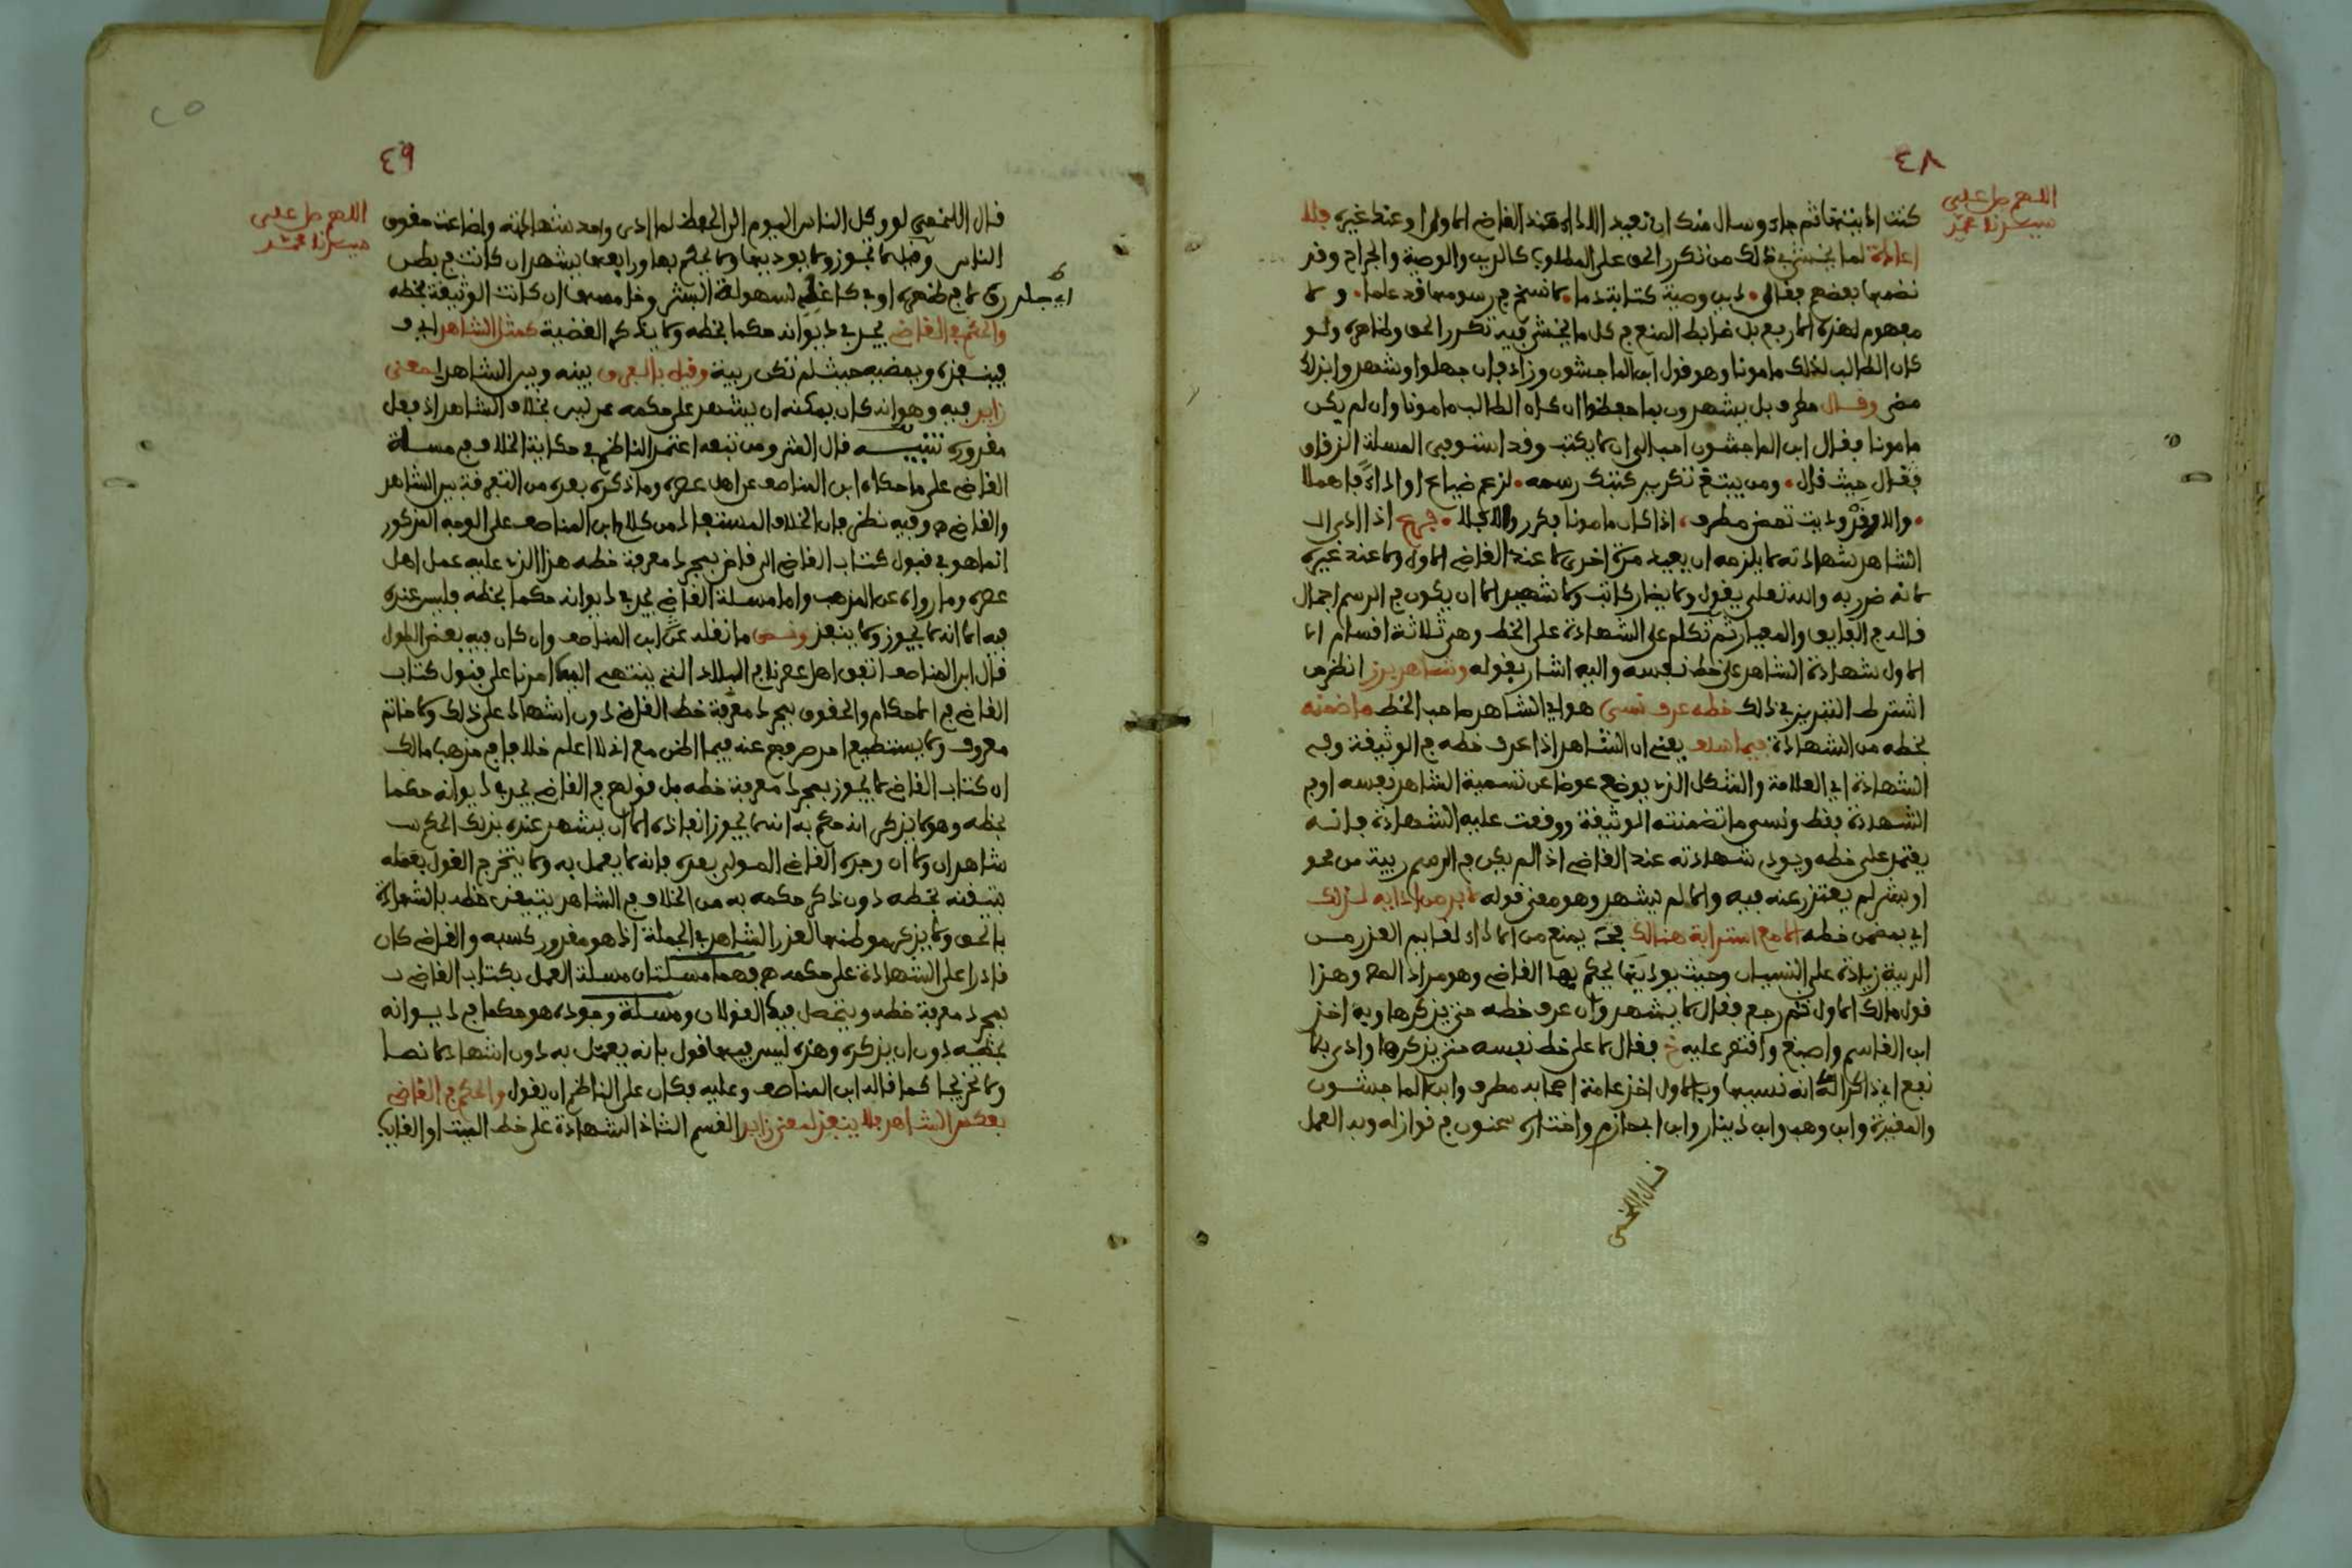 ٤٨
اللهم صل على
سيدنا محمد
كنت اديتها ثم جاء وسال منك ان تعيد الاداء عند القاضي الاول او عند غيره فلا
اعادة لما يخشى في ذلك من تكرر الحق على المطلوب كالدين والوصية والجراح وقد
نضمها بعضهم فقال دين وصية كتابة دما لا تنسخ رسومها قد علما ولا
مفهوم لهذه الاربع بل ضابط المنع في كل ما يخشى فيه تكرر الحق وظاهره ولو
كان الطالب لذلك مامونا وهو قول ابن الماجشون وزاد فان جهلوا وشهدوا بذلك
مضى وقال مطرف بل يشهدون بما حفظوا ان كان الطالب مامونا وان لم يكن
مامونا فقال ابن الماجشون احب الي ان لا يكتب وقد استوفى المسلة الزقاق
فقال حيث قال ومن يبتغ تكرير كتبك رسمه لزعم ضياع او اداء فاهملا
اذا كان مامونا فكرر والا فلا فرع اذا ادى
الشاهد شهادته لا يلزمه ان يعيد مرة اخرى لا عند القاضي الاول ولا عند غيره
لانه ضرر به والله تعلى يقول ولا يضار كاتب ولا شهيد الا ان يكون في الرسم اجمال
قاله في الفايق والمعيار ثم تكلم على الشهادة على الخط وهي ثلاثة اقسام
الاول شهادة الشاهد على خط نفسه واليه اشار بقوله وشاهد برز انظر من
اشترط التبريز في ذلك خطه عرف نسي هو اي الشاهد صاحب الخط ما ضمنه
بخطه من الشهادة فيما سلف يعني ان الشاهد اذا عرف خطه في الوثيقة وفي
الشهادة اي العلامة والشكل الذي يوضع عوضا عن تسمية الشاهد نفسه او في
الشهادة فقط ونسي ما تضمنته الوثيقة ووقعت عليه الشهادة فانه
يعتمد على خطه ويودي شهادته عند القاضي اذا لم يكن في الرسم ريبة من محو
او بشر لم يعتذر عنه فيه والا لم يشهد وهو معنى قوله لا بد من اداء به لذلك
اي بمضمن خطه الا مع استرابة هنالك يمنع من الاداء لقايم العذر من
الريبة زيادة على النسيان وحيث يوديها يحكم بها القاضي وهو مراد وهذا
قول مالك الاول ثم رجع فقال لا يشهد وان عرف خطه حتى يذكرها وبه اخذ
ابن القاسم واصبغ واقتصر عليه خ فقال لا على خط نفسه حتى يذكرها وادى بلا
نفع اي ذاكرا انه نسيها وبالاول اخذ عامة اصحابه مطرف وابن الماجشون
والمغيرة وابن وهب وابن دينار وابن ابي حازم واختاره سحنون في نوازله وبه العمل
قال اللخمي
٤٩
اللهم صل على
سيدنا محمد
قال اللخمي لو وكل الناس اليوم الى الحفظ لما ادى واحد شهادته ولضاعت حقوق
الناس وقيل لا تجوز ولا يوديها ولا يحكم بها ورابعها يشهد ان كانت في بطن
رق لا في ظهره او في كاغد لسهولة البشر وخامسها ان كانت الوثيقة بخطه
اي جلد
والحكم في القاضي يجد في ديوانه حكما بخطه ولا يذكر القضية كمثل الشاهد اي
فينفذه ويمضيه حيث لم تكن ريبة وقيل بالفرق بينه وبين الشاهد لمعنى
زايد فيه وهو انه كان يمكنه ان يشهد على حكمه عدلين بخلاف الشاهد اذ فعل
مقدوره تنبيه قال الش ومن تبعه اعتمد الناظم في حكاية الخلاف في مسلة
القاضي على ما حكاه ابن المناصف عن اهل عصره وما ذكره بعده من التفرقة بين الشاهد
والقاضي وفيه نظر فان الخلاف المستفاد من كلام ابن المناصف على الوجه المذكور
انما هو في قبول كتاب القاضي الى قاض بمجرد معرفة خطه هذا الذي عليه عمل اهل
عصره وما رواه عن المذهب واما مسلة القاضي يجد في ديوانه حكما بخطه فليس عنده
فيه الا انه لا يجوز ولا ينفذ ونص ما نقله عن ابن المناصف وان كان فيه بعض الطول
قال ابن المناصف اتفق اهل عصرنا في البلاد التي ينتهي اليها امرنا على قبول كتاب
القاضي في الاحكام والحقوق بمجرد معرفة خط القاضي دون اشهاد على ذلك ولا خاتم
معروف ولا يستطيع احد صرفهم عنه فيما اظن مع اني لا اعلم خلافا في مذهب مالك
ان كتاب القاضي لا يجوز بمجرد معرفة خطه بل قولهم في القاضي يجد في ديوانه حكما
بخطه وهو لا يذكر انه حكم به انه لا يجوز انفاذه الا ان يشهد عنده بذلك الحكم
شاهدان ولا ان وجده القاضي المولى بعده فانه لا يعمل به ولا يتخرج القول بعمله
بتيقنه بخطه دون ذكر حكمه به من الخلاف في الشاهد يتيقن خطه بالشهادة
بالحق ولا يذكر موطنها لعذر الشاهد في الجملة اذ هو مقدور كسبه والقاضي كان
قادرا على الشهادة على حكمه فهما مسلتان مسلة العمل بكتاب القاضي
بمجرد معرفة خطه ويتحصل فيها القولان ومسلة وجوده هو حكما في ديوانه
بخطه دون ان يذكره وهذه ليس فيها قول بانه يعمل به دون اشهاد لا نصا
ولا تخريجا كما قاله ابن المناصف وعليه فكان على الناظم ان يقول والحكم في القاضي
بعكس الشاهد فلا ينفذ لمعنى زايد القسم الثان الشهادة على خط الميت او الغايب